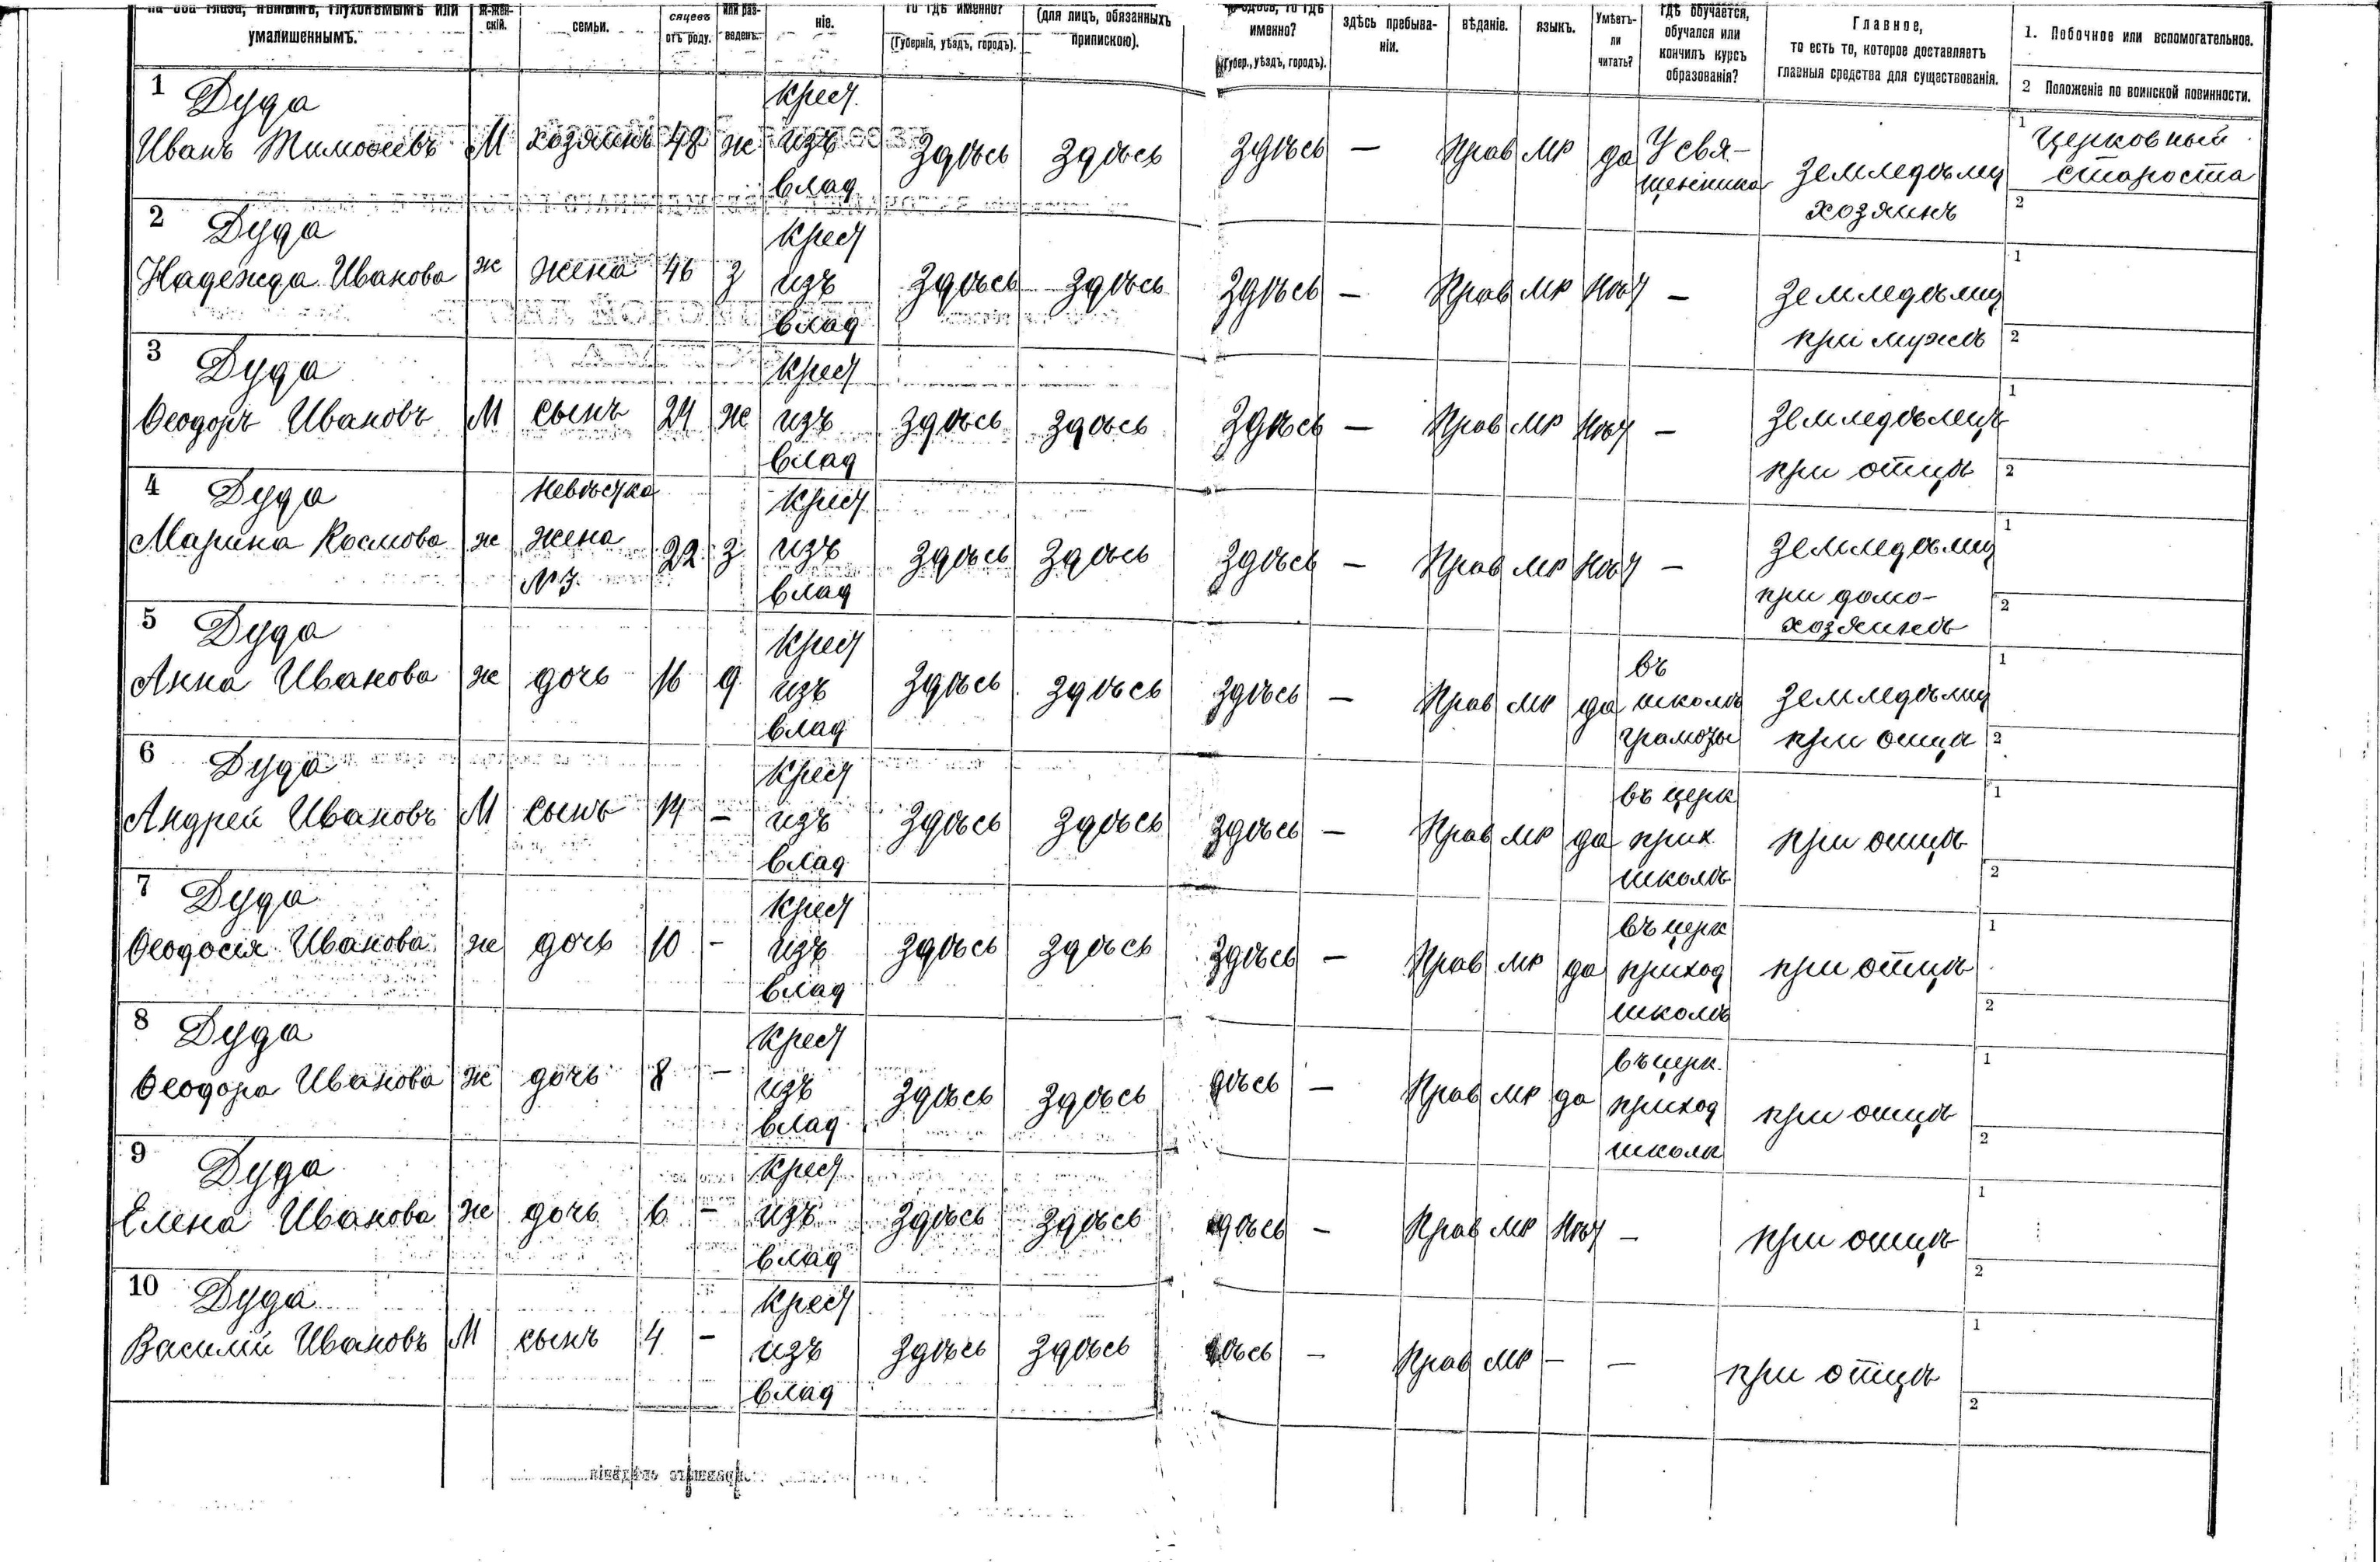 на оба глаза, нѣмымъ, глухонѣмымъ или умалишеннымъ.
скій.
семьи.
сяцевъ отъ роду.
или раз- веденъ.
ніе.
то гдѣ именно? (Губернія, уѣздъ, городъ).
(для лицъ, обязанныхъ припискою).
именно? (Губер., уѣздъ, городъ).
здѣсь пребыва- ніи.
вѣданіе.
языкъ.
Умѣетъ- ли читать?
гдѣ обучается, обучался или кончилъ курсъ образованія?
Главное, то есть то, которое доставляетъ главныя средства для существованія.
1. Побочное или вспомогательное.
2 Положеніе по воинской повинности.
1 Дуда
Иванъ Тимофеевъ М хозяинъ 48 ж крест. изъ влад здѣсь здѣсь здѣсь — Прав мр да У свя- щенника земледѣлец хозяинъ 1 церковный староста 2
2 Дуда
Надежда Иванова ж жена 46 з крест изъ влад здѣсь здѣсь здѣсь — Прав мр нѣт — земледѣлиц при мужѣ 1 2
3 Дуда
Ѳеодоръ Ивановъ М сынъ 24 ж крест изъ влад здѣсь здѣсь здѣсь — Прав мр нѣт — земледѣлецъ при отцѣ 1 2
4 Дуда
Марина Космова ж невѣстка жена №3. 22 з крест изъ влад здѣсь здѣсь здѣсь — Прав мр нѣт — земледѣлиц при домо- хозяинѣ 1 2
5 Дуда
Анна Иванова ж дочь 16 д крест изъ влад здѣсь здѣсь здѣсь — Прав мр да въ школѣ грамоты земледѣлиц при отцѣ 1 2
6 Дуда
Андрей Ивановъ М сынъ 14 — крест изъ влад здѣсь здѣсь здѣсь — Прав мр да въ церк прих школѣ при отцѣ 1 2
7 Дуда
Ѳеодосія Иванова ж дочь 10 - крест изъ влад здѣсь здѣсь здѣсь — Прав мр да въ церк приход школѣ при отцѣ 1 2
8 Дуда
Ѳеодора Иванова ж дочь 8 — крест изъ влад здѣсь здѣсь дѣсь — Прав мр да въ церк. приход школѣ при отцѣ 1 2
9 Дуда
Елена Иванова ж дочь 6 - крест изъ влад здѣсь здѣсь здѣсь — Прав мр нѣт — при отцѣ 1 2
10 Дуда
Василій Ивановъ М сынъ 4 - крест изъ влад здѣсь здѣсь дѣсь — Прав мр — — при отцѣ 1 2